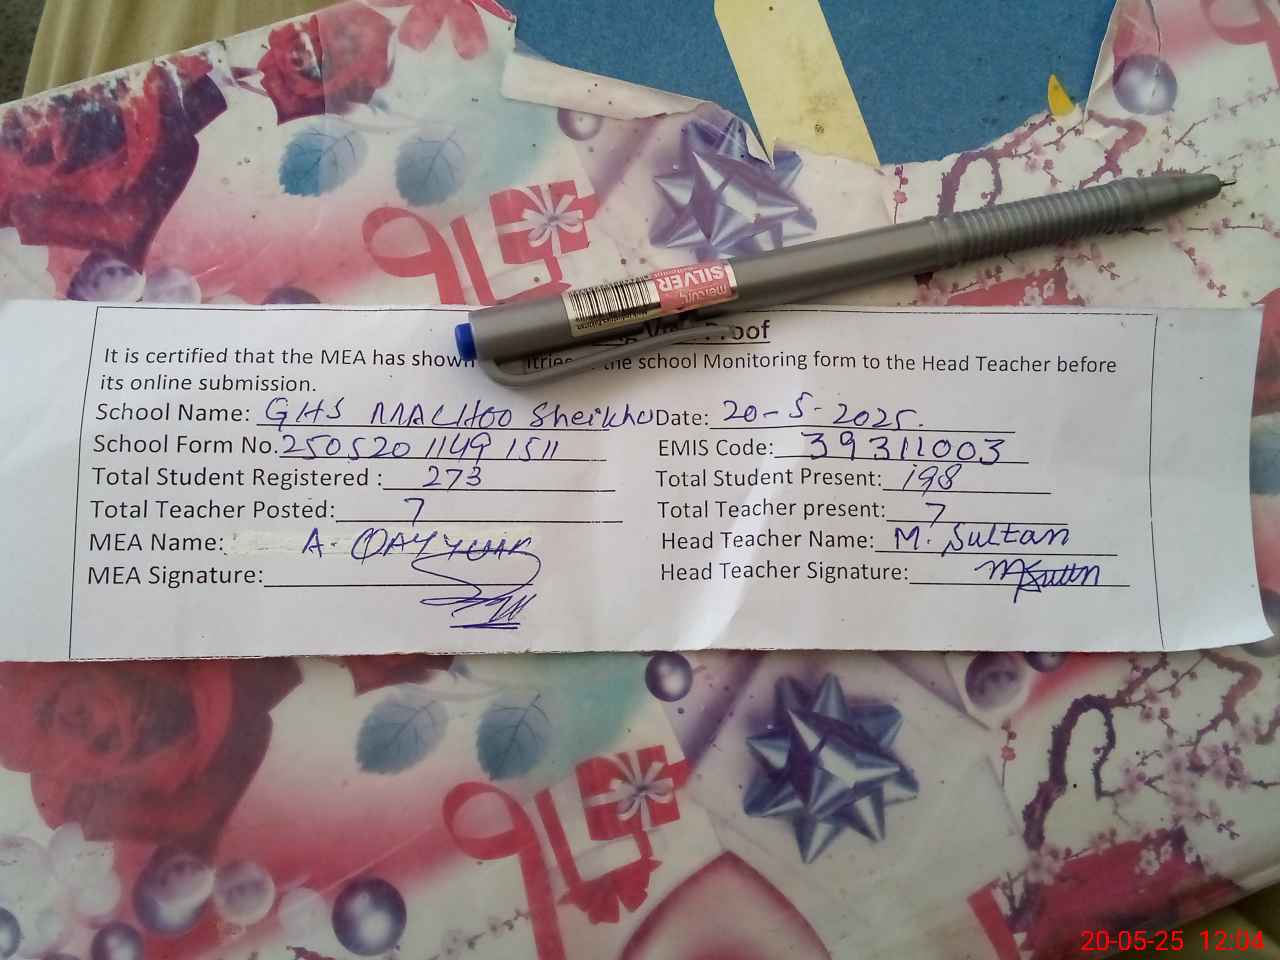 SILVER
mercury
Proof
It is certified that the MEA has shown the school Monitoring form to the Head Teacher before
its online submission.
School Name: GHS MACHOO Sheikhu Date: 20-5-2025.
School Form No. 250520 1149 1511 EMIS Code: 39311003
Total Student Registered : 273 Total Student Present: 198
Total Teacher Posted: 7 Total Teacher present: 7
MEA Name: A. QAYYUM Head Teacher Name: M. Sultan
MEA Signature: Head Teacher Signature: M Sultan
20-05-25 12:04